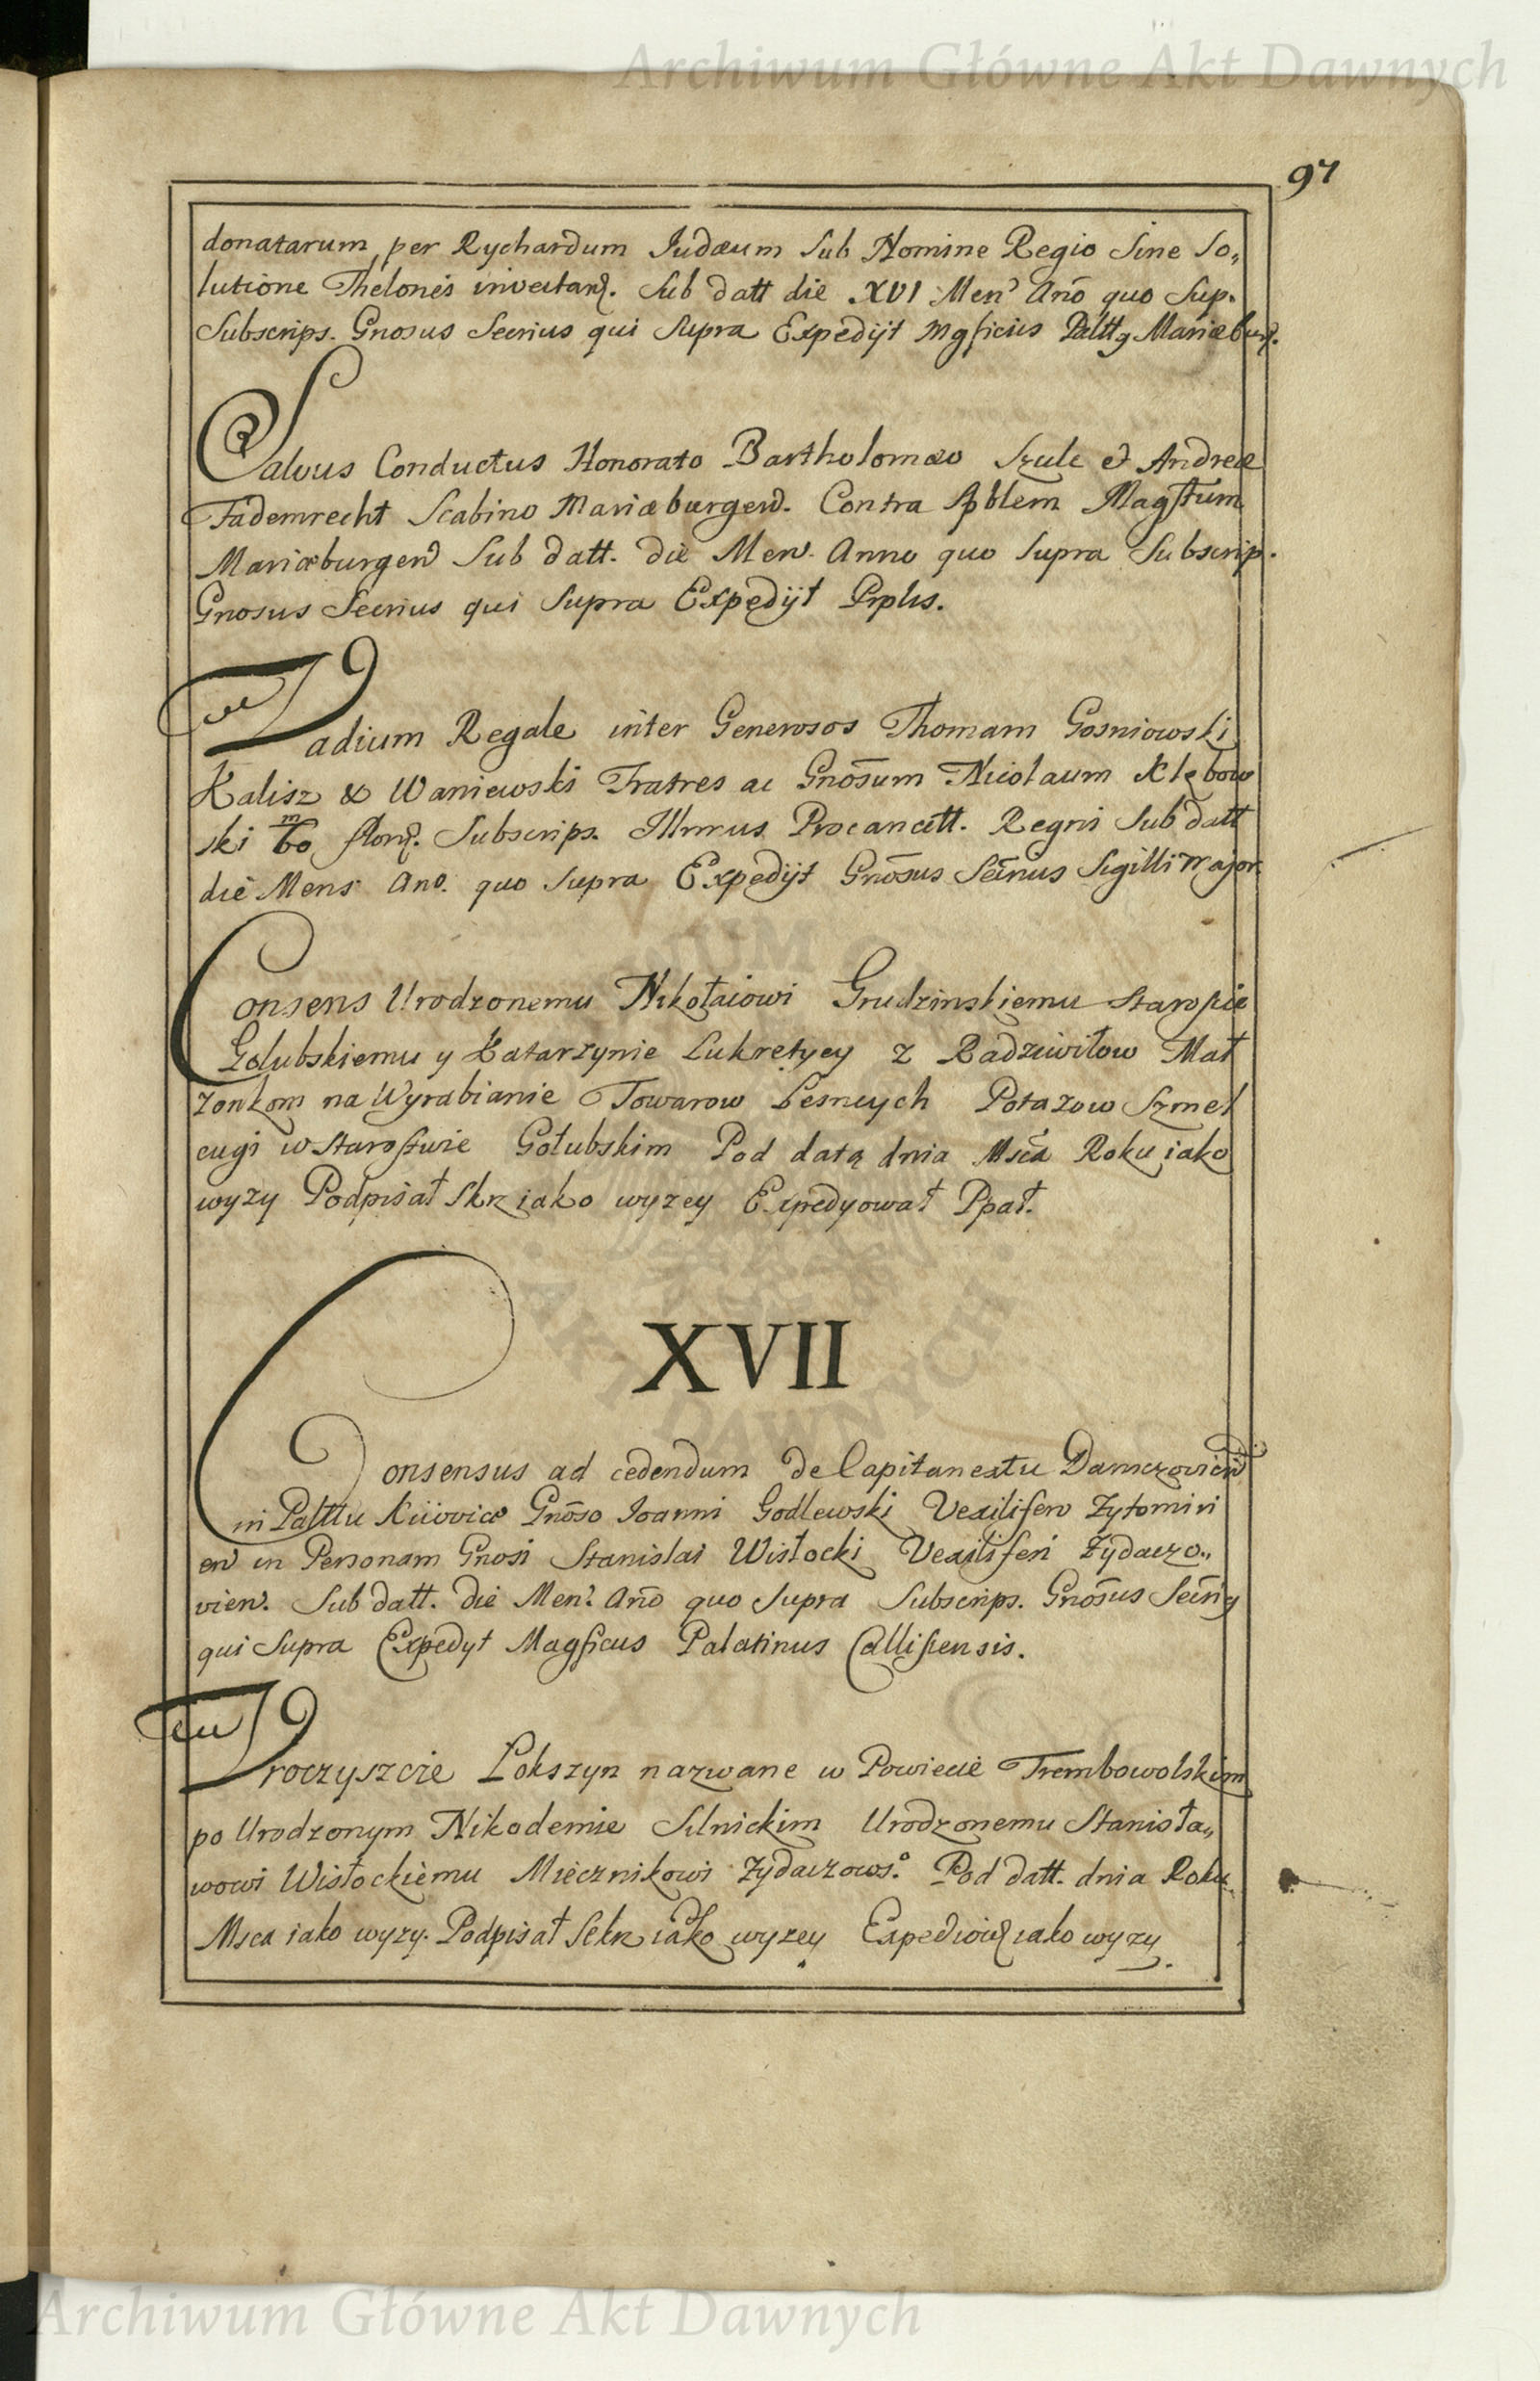 Archiwum Główne Akt Dawnych
97
donatarum per Rychardum Judæum Sub Nomine Regio Sine So„
lutione Thelonei invectarꝝ. Sub datt die XVI Men? Anō quo Sup.
Subscrips. Gnosus Secrius qui Supra Expedijt Mgficus Palttg Mariæburg.
Salvus Conductus Honorato Bartholomæo Szulc et Andreæ
Fademrecht Scabino Mariæburgen. Contra Spblem Magstum
Mariæburgen Sub datt. die Men. Anno quo Supra Subscrip.
Gnosus Secrius qui Supra Expedijt Prplis.
Vadium Regale inter Generosos Thomam Gosniowski
Kalisz & Waniewski Fratres ac Gnōsum Nicolaum Klębow
ski flonꝝ. Subscrips. Illmus Procancell. Regni Sub datt
die Mens Ano. quo Supra Expedijt Gnōsus Secrius Sigilli Major
Consens Urodzonemu Nikołaiowi Grudzinskiemu Staroście
Golubskiemu y Katarzynie Lukretyey z Radziwiłow Mał
zonkom na Wyrabianie Towarow Lesnych Potazow Szmel
cugi w Starostwie Gołubskim Pod datą dnia Msca Roku iako
wyzy Podpisał Skr iako wyzey Expedyował Ppał.
XVII
Consensus ad cedendum de Capitaneatu Damczovien
in Palttu Kiioviæ Gnōso Joanni Godlewski Vexilifero Zytomiri
en in Personam Gnosi Stanislai Wisłocki Vexiliferi Zydaczo„
vien. Sub datt. die Men? Anō quo Supra Subscrips. Gnōsus Secrig
qui Supra Expedyt Magficus Palatinus Callisiensis.
Uroczyszcze Lokszyn nazwane w Powiecie Trembowolskim
po Urodzonym Nikodemie Silnickim Urodzonemu Stanisła„
wowi Wisłockiemu Miecznikowi Zydaczows.° Pod datt. dnia Roku
Msca iako wyzy. Podpisał Sekr iako wyzey iako wyzy.
Archiwum Główne Akt Dawnych